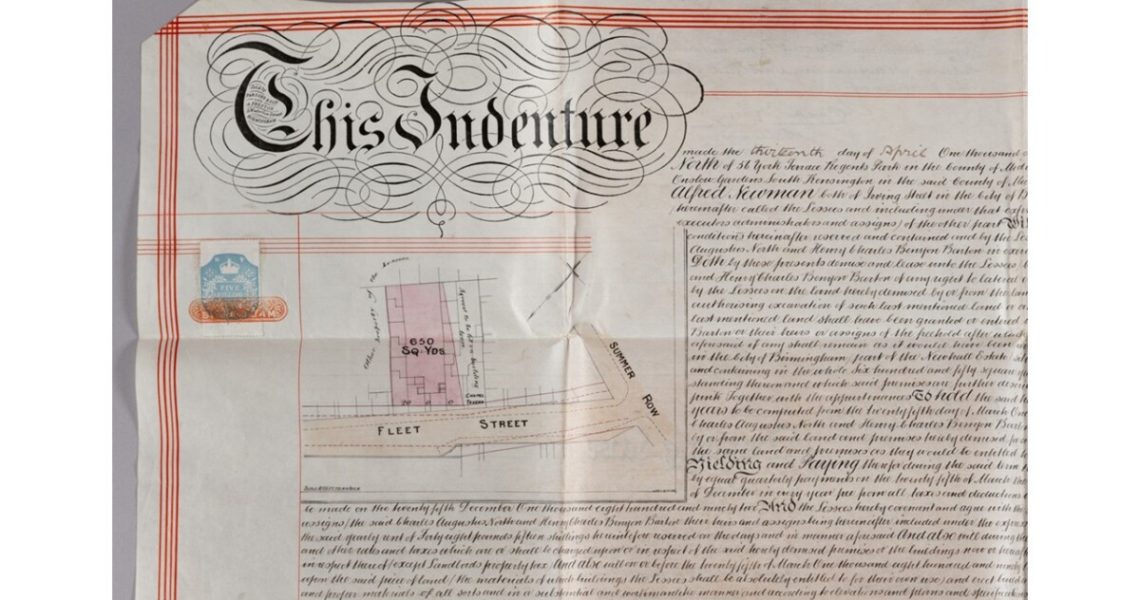 This Indenture
made the thirteenth day of April One thousand
North of 56 York Terrace Regents Park in the County of
Onslow Gardens South Kensington in the said County of
Alfred Newman both of Irving Street in the City of
hereinafter called the Lessees and including under that
executors administrators and assigns) of the other part
conditions hereinafter reserved and contained and by the
Augustus North and Henry Charles Benyon Barton in
Doth by these presents demise and lease unto the Lessees
and Henry Charles Benyon Barton of any right to lateral
by the Lessees on the land hereby demised by or from the
authorising excavation of such last mentioned land or
last mentioned land shall have been granted or entered
Barton or their heirs or assigns of the freehold after which
aforesaid if any shall remain as it would have been
in the City of Birmingham part of the Newhall Estate
and containing in the whole Six hundred and fifty square
standing thereon and which said premises are further
pink Together with the appurtenances To hold the said
years to be computed from the twenty fifth day of March One
Charles Augustus North and Henry Charles Benyon Barton
by or from the said land and premises hereby demised
the same land and premises as they would be entitled to
Yielding and Paying therefor during the said term
by equal quarterly payments on the twenty fifth of March
of December in every year free from all taxes and deductions
FIVE
Other Property of the Lessors
650
SQ. YDS.
CHAPEL
TAVERN
SUMMER ROW
FLEET STREET
be made on the twenty fifth December One thousand eight hundred and ninety two And the Lessees hereby covenant and agree with the
assigns (the said Charles Augustus North and Henry Charles Benyon Barton their heirs and assigns being hereinafter included under the
the said yearly rent of Forty eight pounds fifteen shillings hereinbefore reserved on the days and in manner aforesaid And also will during the
and other rates and taxes which are or shall be charged upon or in respect of the said hereby demised premises or the buildings now or
in respect thereof (except Landlords property tax) And also will on or before the twenty fifth of March One thousand eight hundred and ninety
upon the said piece of land (the materials of which buildings the Lessees shall be absolutely entitled to for their own use) and erect
and proper materials of all sorts and in a substantial and workmanlike manner and according to elevations and plans and